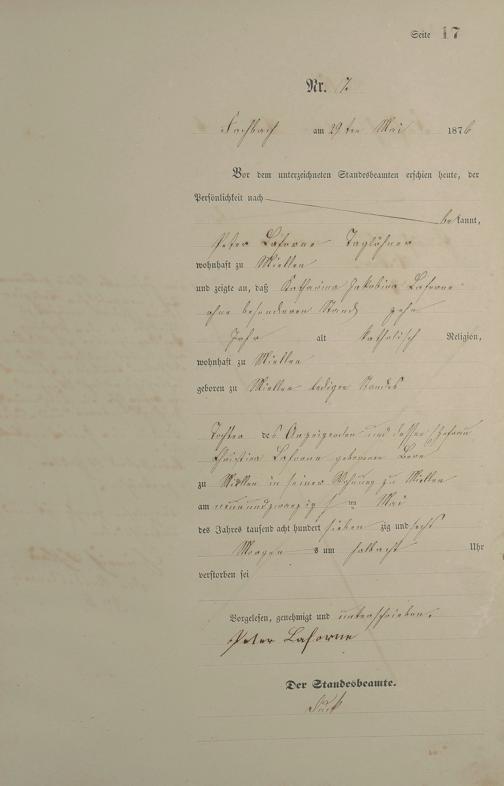 Seite 17
Nr. 7
Fachbach am 29ten Mai 1876
Vor dem unterzeichneten Standesbeamten erschien heute, der
Persönlichkeit nach
bekannt,
Peter Laforne Taglöhner
wohnhaft zu Miellen
und zeigte an, daß Katharina Jakobina Laforne
ohne besonderen Stand zehn
Jahr alt katholisch Religion,
wohnhaft zu Miellen
geboren zu Miellen ledigen Standes
Tochter des Anzeigenden und dessen Ehefrau
Christina Laforne geborenen
zu Miellen in seiner Wohnung zu Miellen
am neunundzwanzigsten Mai
des Jahres tausend acht hundert siebenzig und sechs
Morgens um halbacht Uhr
verstorben sei
Vorgelesen, genehmigt und unterschrieben.
Peter Laforne
Der Standesbeamte.